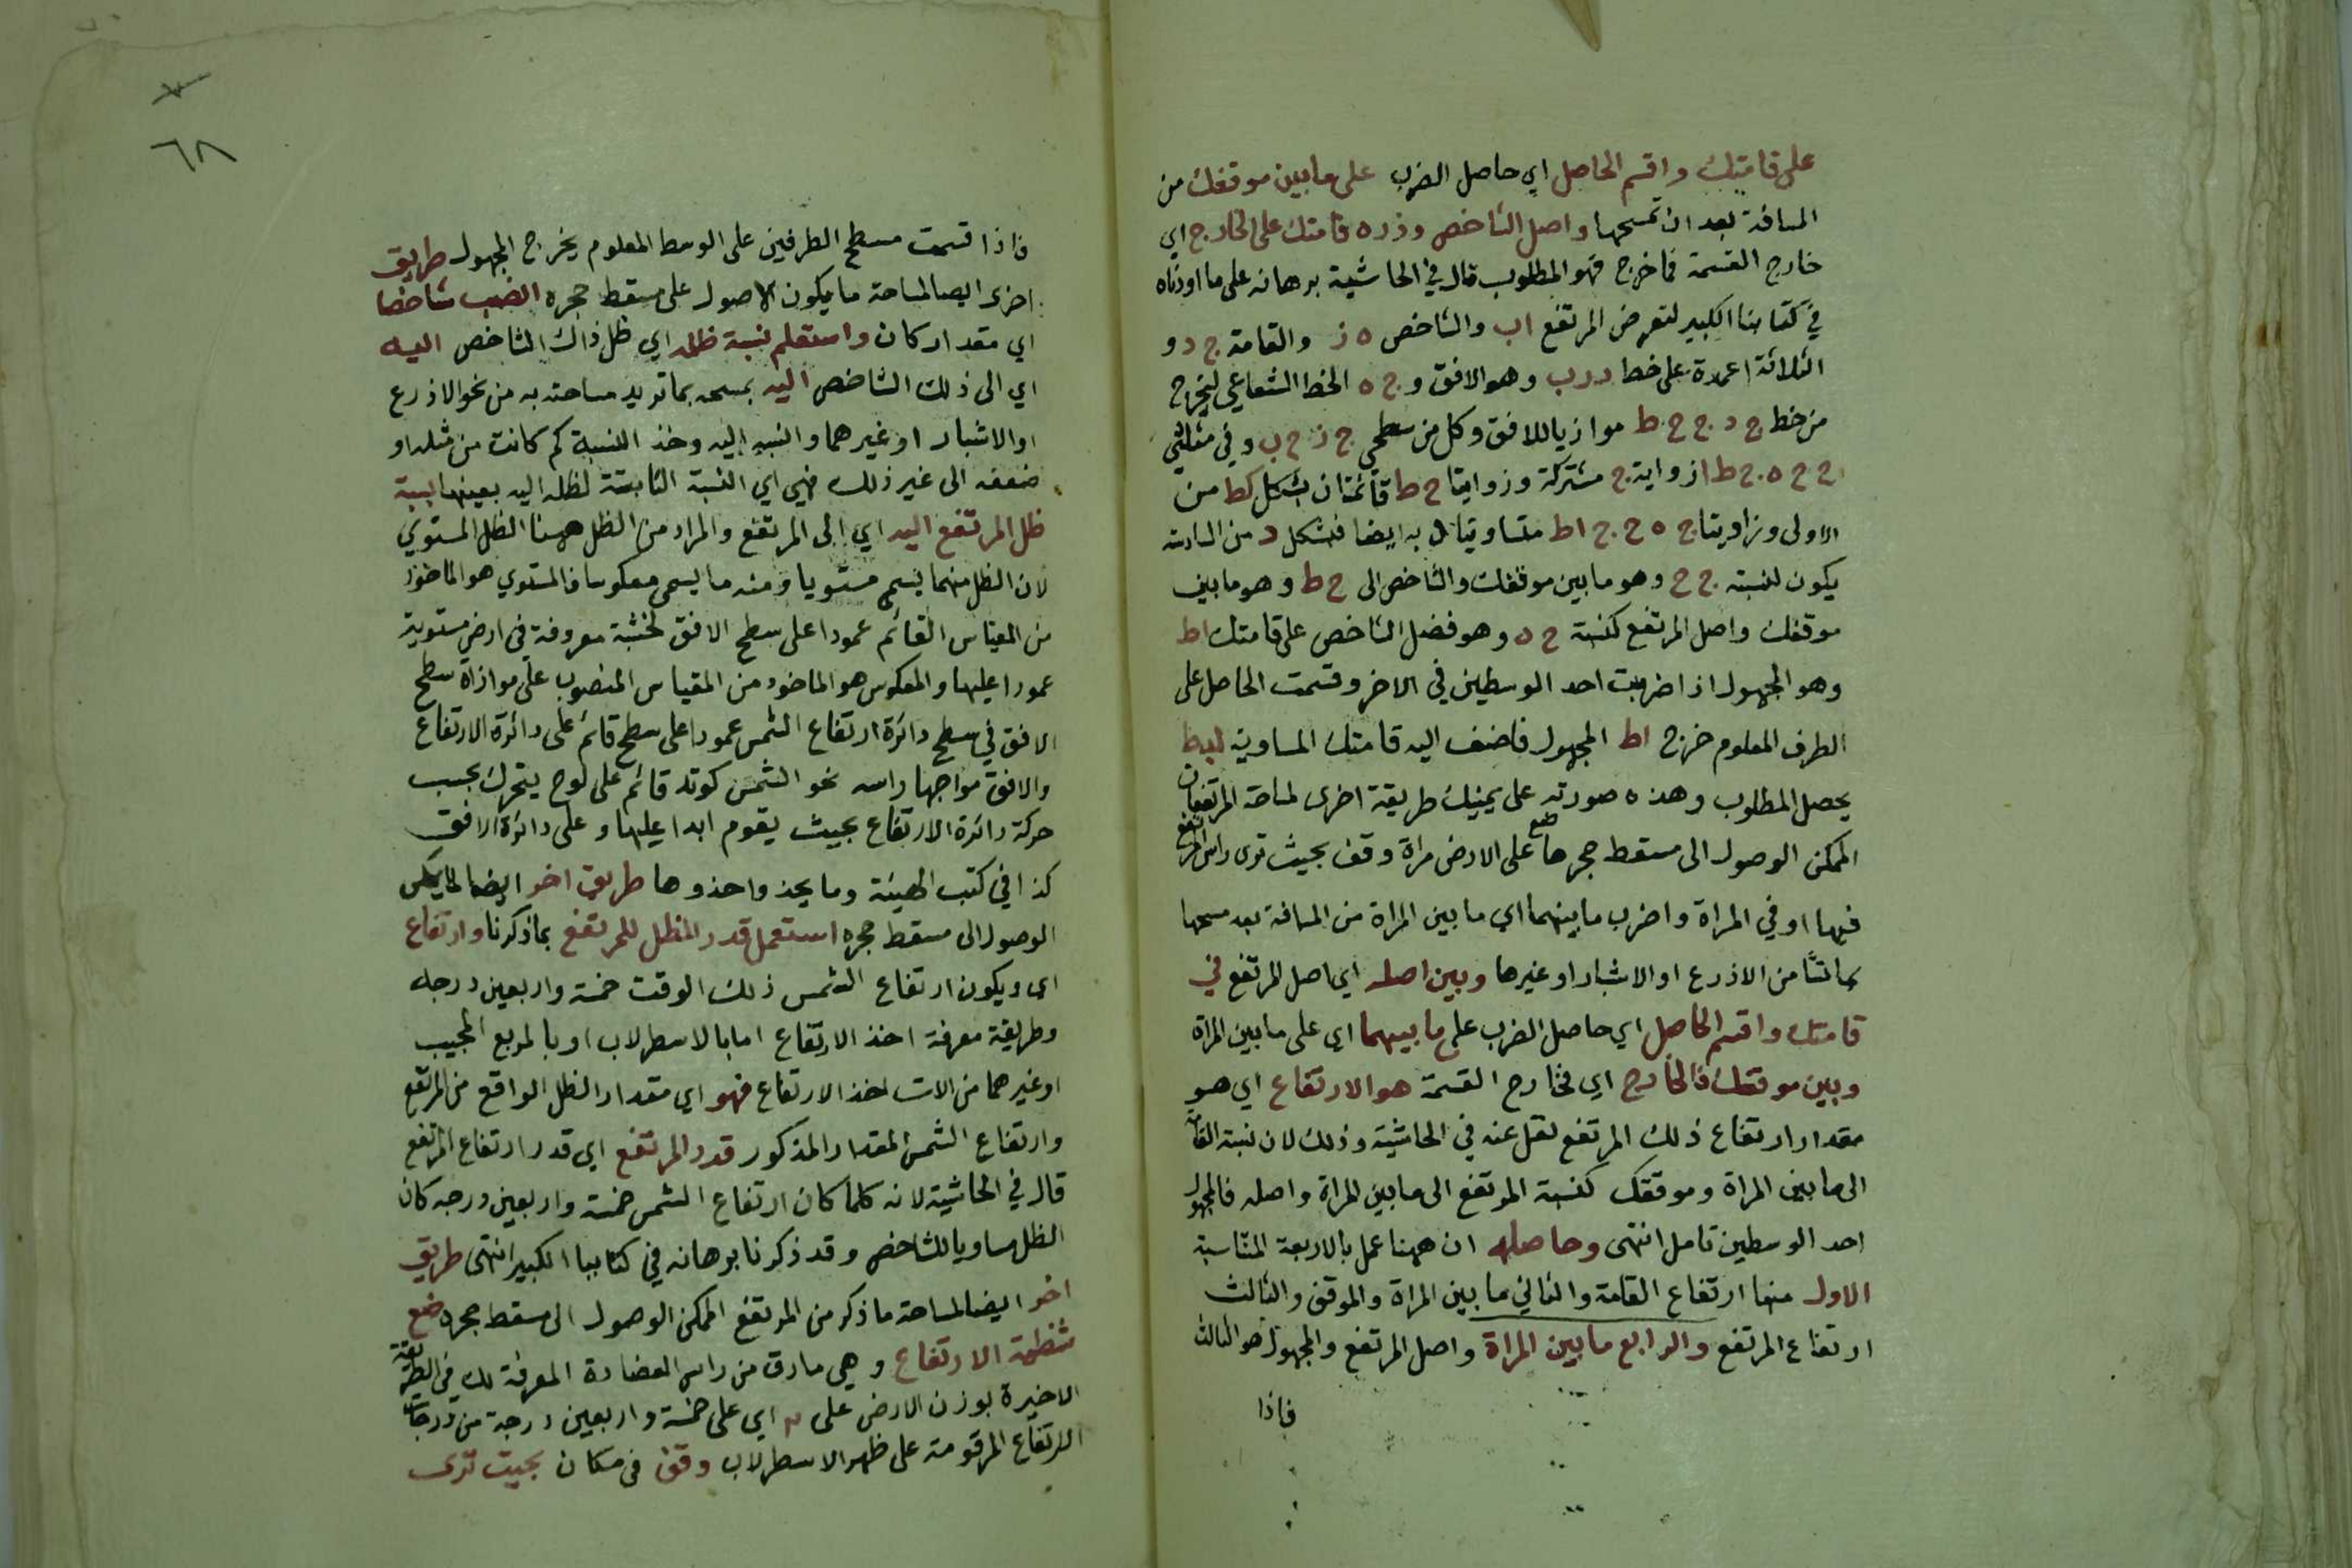 على قامتك واقسم الحاصل اي حاصل الضرب على ما بين موقفك من
المسافة بعد ان تمسحها واصل الشاخص وزده قامتك على الخارج اي
خارج القسمة فما خرج فهو المطلوب قال في الحاشية برهانه على ما اوردناه
في كتابنا الكبير لنعرض المرتفع اب والشاخص ه ز والقامة ج د و
الثلاثة اعمدة على خط د ر ب وهو الافق و ج ه الخط الشعاعي ليخرج
من خط ج د ج ح ط موازيا للافق وكل من سطحي ج ز ح ب وفي مثلثي
ح ج ه ج ط ا زواية ج مشتركة وزوايتا ح ط قائمتان بشكل كط من
الاولى وزاويتا ج ه ح ج اط متساويتان به ايضا فشكل د من السادسة
يكون لنسبته ج ح وهو ما بين موقفك والشاخص الى ح ط وهو ما بين
موقفك واصل المرتفع كنسبة ح ه وهو فضل الشاخص على قامتك اط
وهو المجهول اذا ضربت احد الوسطين في الاخر وقسمت الحاصل على
الطرف المعلوم خرج اط المجهول فاضف اليه قامتك المساوية لبط
يحصل المطلوب وهذه صورته على يمينك طريقة اخرى لمساحة المرتفعات
الممكن الوصول الى مسقط حجرها ضع على الارض مراة وقف بحيث ترى راس المرتفع
فيها او في المراة واضرب ما بينهما اي ما بين المراة من المسافة بعد مسحها
بما شئنا من الاذرع او الاشبار او غيرها وبين اصله اي اصل المرتفع في
قامتك واقسم الحاصل اي حاصل الضرب على ما بينهما اي على ما بين المراة
وبين موقفك فالخارج اي فخارج القسمة هو الارتفاع اي هو
مقدار ارتفاع ذلك المرتفع نقل عنه في الحاشية وذلك لان نسبة القامة
الى ما بين المراة وموقفك كنسبة المرتفع الى ما بين المراة واصله فالمجهول
احد الوسطين تامل انتهى وحاصله ان ههنا عمل بالاربعة المتناسبة
الاول منها ارتفاع القامة والثاني ما بين المراة والموقف والثالث
ارتفاع المرتفع والرابع ما بين المراة واصل المرتفع والمجهول هو الثالث
فاذا
٦٨
فاذا قسمت مسطح الطرفين على الوسط المعلوم يخرج المجهول طريق
اخرى ايضا لمساحة ما يكون الاصول على مسقط حجره انصب شاخصا
اي مقدار كان واستعلم نسبة ظله اي ظل ذاك الشاخص اليه
اي الى ذلك الشاخص اليه بمسحه بما تريد مساحته به من نحو الاذرع
او الاشبار او غيرهما والنسبه اليه وخذ النسبة كم كانت من مثله او
ضعفه الى غير ذلك فهي اي النسبة الثابتة لظله اليه بعينها نسبة
ظل المرتفع اليه اي الى المرتفع والمراد من الظل ههنا الظل المستوي
لان الظل منهما يسمى مستويا ومنه ما يسمى معكوسا فالمستوي هو الماخوذ
من المقياس القائم عمودا على سطح الافق كخشبة معروفة في ارض مستوية
عمودا عليها والمعكوس هو الماخوذ من المقياس المنصوب على موازاة سطح
الافق في سطح دائرة ارتفاع الشمس عمودا على سطح قائم على دائرة الارتفاع
والافق مواجها راسه نحو الشمس كوتد قائم على لوح يتحرك بحسب
حركة دائرة الارتفاع بحيث يقوم ابدا عليها وعلى دائرة الافق
كذا في كتب الهيئة وما يحذو حذوها طريق اخر ايضا لما يمكن
الوصول الى مسقط حجره استعمل قدر الظل للمرتفع بما ذكرنا وارتفاع
اي ويكون ارتفاع الشمس ذلك الوقت خمسة واربعين درجه
وطريقة معرفة اخذ الارتفاع اما بالاسطرلاب او بالمربع المجيب
او غيرهما من الات اخذ الارتفاع فهو اي مقدار الظل الواقع من المرتفع
وارتفاع الشمس المقدار المذكور قدر المرتفع اي قدر ارتفاع المرتفع
قال في الحاشية لانه كلما كان ارتفاع الشمس خمسة واربعين درجه كان
الظل مساويا للشاخص وقد ذكرنا برهانه في كتابنا الكبير انتهى طريق
اخر ايضا لمساحة ما ذكر من المرتفع الممكن الوصول الى مسقط حجره ضع
شظية الارتفاع وهي ما دق من راس العضادة المعرفة لك في الطريقة
الاخيرة بوزن الارض على م‍ه اي على خمسة واربعين درجة من درجات
الارتفاع المرقومة على ظهر الاسطرلاب وقف في مكان بحيث ترى